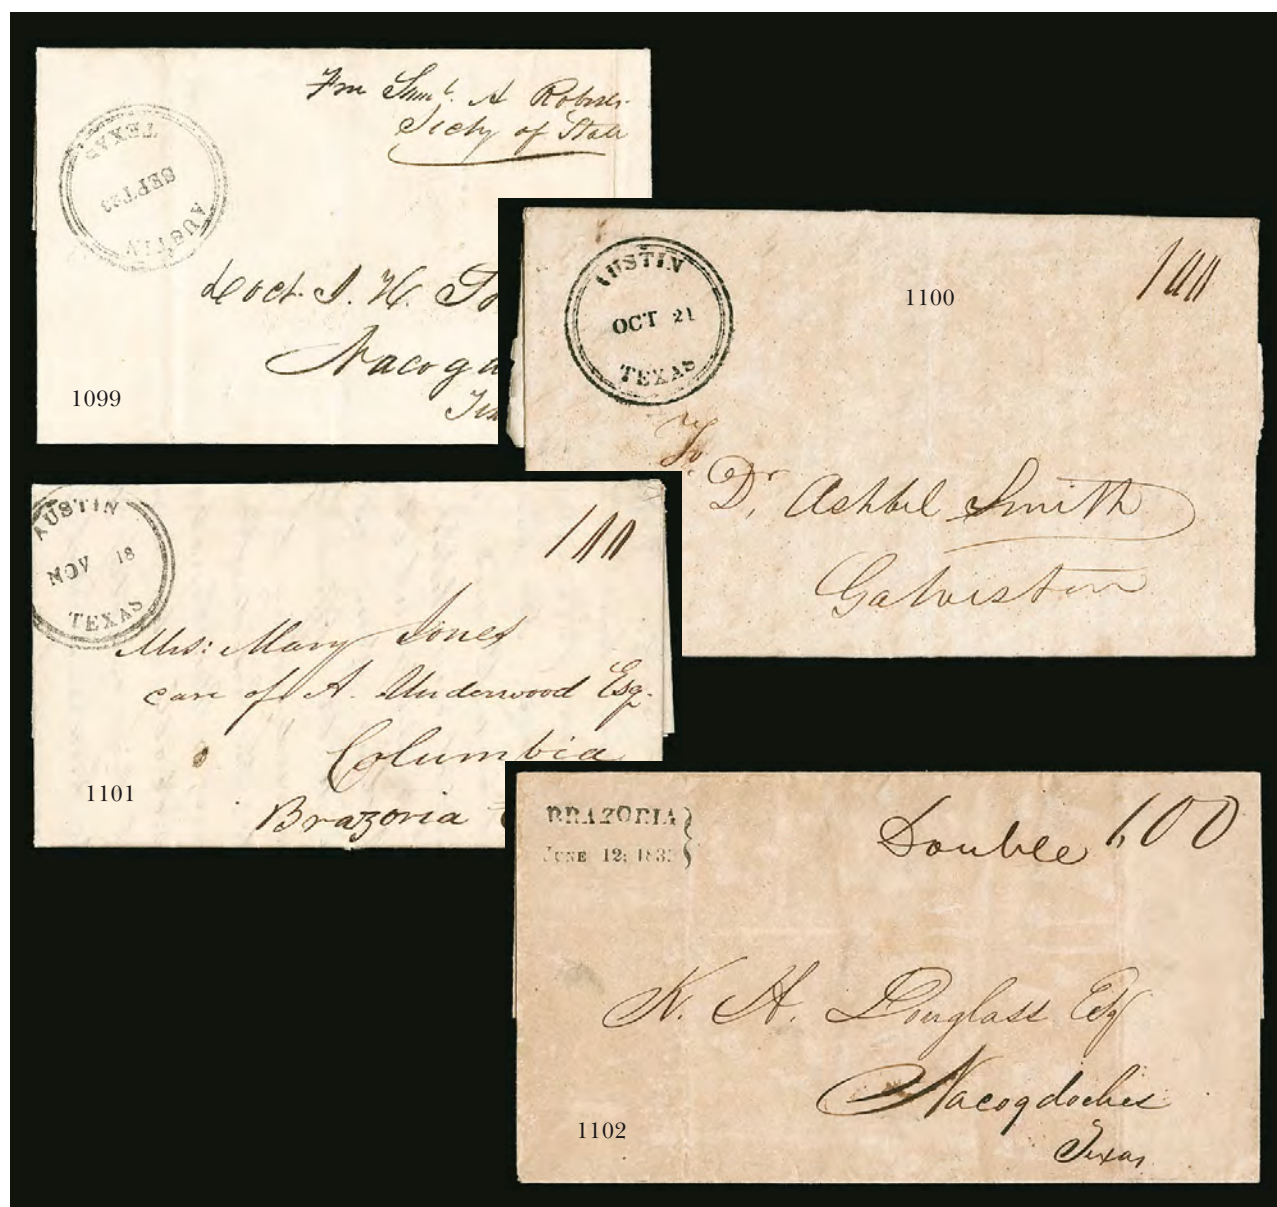 Fm Saml. A Roberts
Secty of State
TEXAS
SEPT 23
AUSTIN
Doct. J. H.
Nacog
1099
AUSTIN
OCT 21
TEXAS
100
1100
To.
Dr. Ashbel Smith
Galveston
AUSTIN
NOV 18
TEXAS
100
Mrs: Mary Jones
care of A. Underwood Esq.
Columbia
Brazoria
1101
BRAZORIA
JUNE 12: 183
Double 1.00
K. H. Douglass Esq
Nacogdoches
Texas
1102